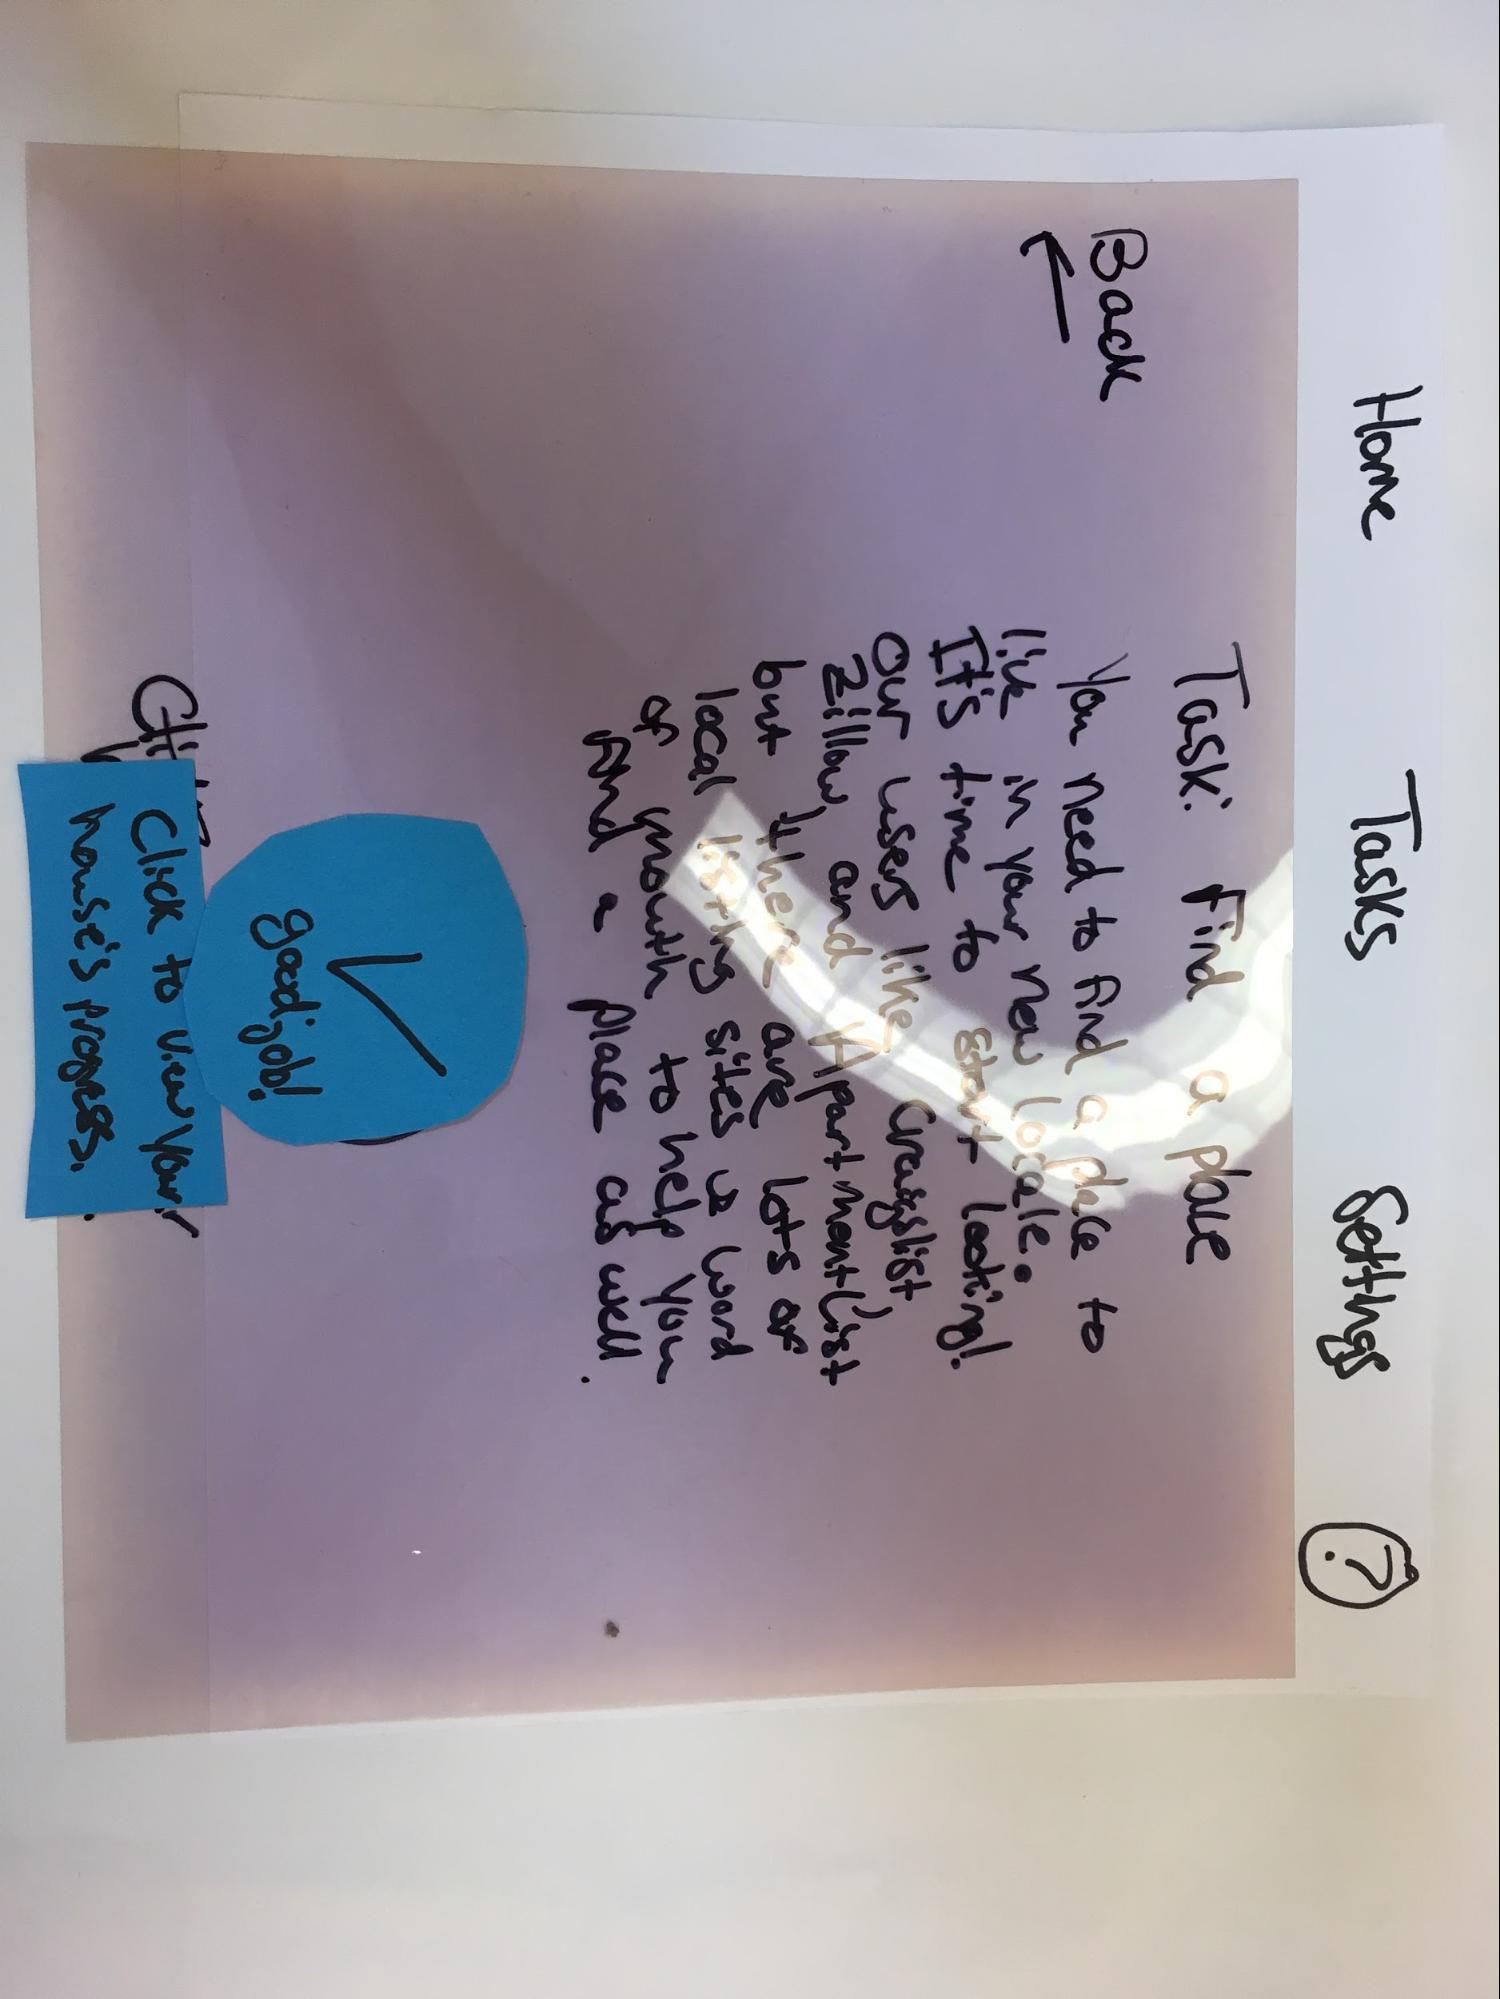 Home Tasks Settings ?
Back
Task: Find a place
You need to find a place to
live in your new locale.
It's time to start looking!
Our users like Craigslist
Zillow, and ApartmentList
but there are lots of
local listing sites
or mouth to help you
find a place as well.
good job!
Click to view your
house's progress.